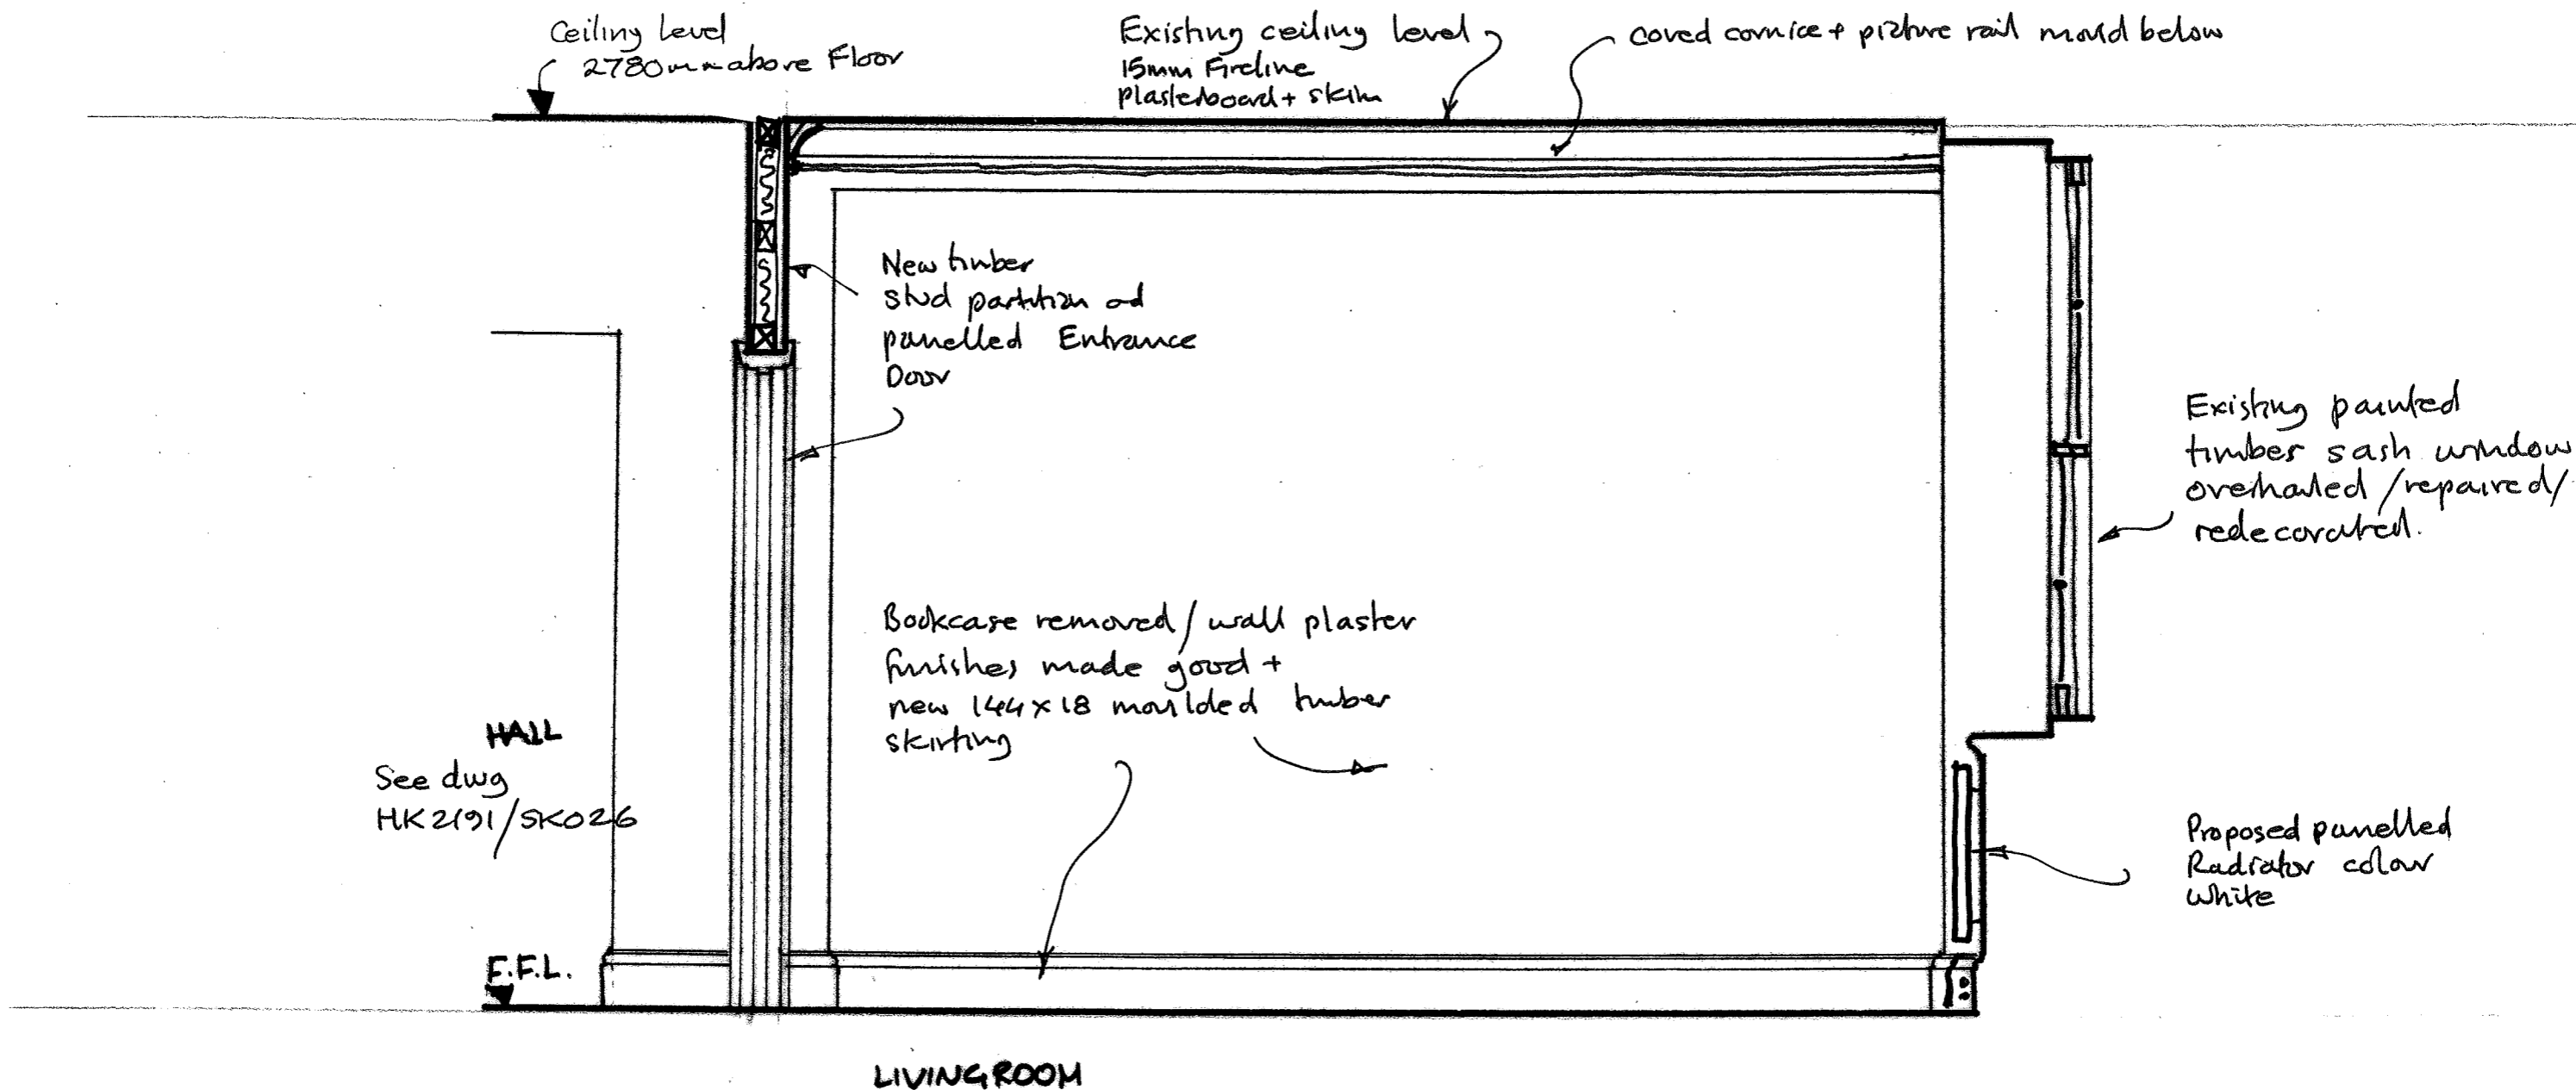 Ceiling Level
2780mm above Floor
Existing ceiling level
15mm Fireline
plasterboard + skim
coved cornice + picture rail mould below
New timber
stud partition ad
panelled Entrance
Door
Existing painted
timber sash window
overhauled / repaired /
redecorated.
Bookcase removed / wall plaster
finishes made good +
new 144 x 18 moulded timber
skirting
HALL
See dwg
HK2191/SK026
Proposed panelled
Radiator colour
white
F.F.L.
LIVING ROOM